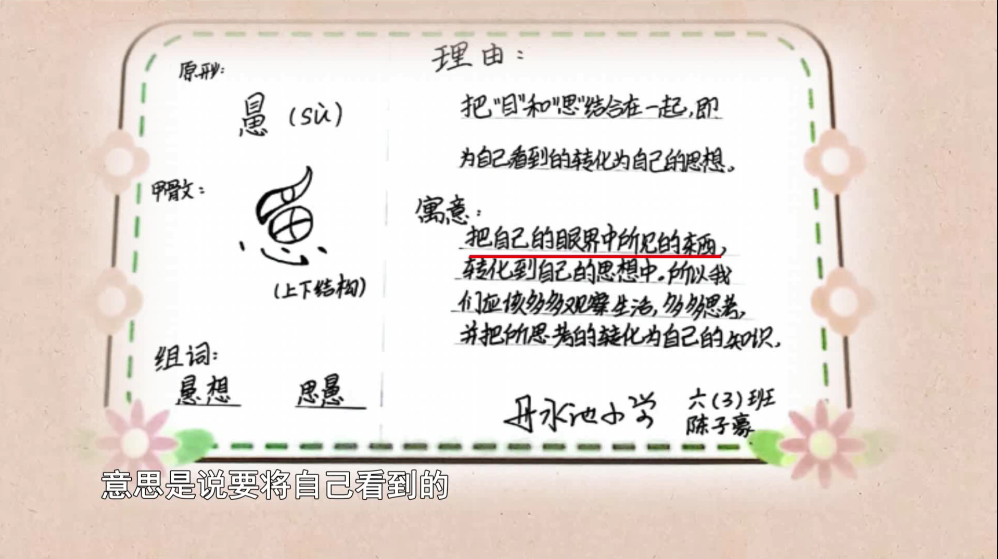 原形:
(sù)
甲骨文:
(上下结构)
组词:
想 思
理由:
把"目"和"思"结合在一起,即
为自己看到的转化为自己的思想。
寓意:
把自己的眼界中所见的东西,
转化到自己的思想中。所以我
们应该多多观察生活,多多思考,
并把所思考的转化为自己的知识.
丹水池小学
六(3)班
陈子豪
意思是说要将自己看到的